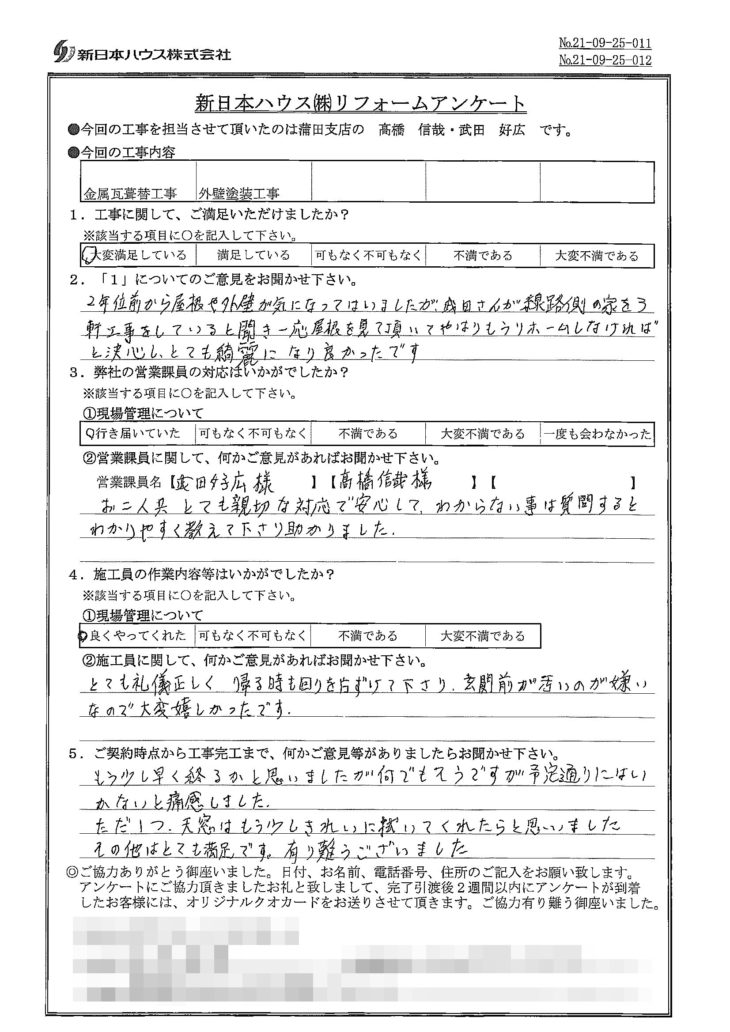 新日本ハウス株式会社
No.21-09-25-011
No.21-09-25-012
新日本ハウス㈱リフォームアンケート
●今回の工事を担当させて頂いたのは蒲田支店の 高橋 信哉・武田 好広 です。
●今回の工事内容
金属瓦葺替工事 外壁塗装工事
1．工事に関して、ご満足いただけましたか？
※該当する項目に○を記入して下さい。
大変満足している 満足している 可もなく不可もなく 不満である 大変不満である
2．「1」についてのご意見をお聞かせ下さい。
2年位前から屋根や外壁が気になってはいましたが武田さんが線路側の家を3
軒工事をしていると聞き一応屋根を見て頂いてやはりもうリホームしなければ
と決心し、とても綺麗になり良かったです
3．弊社の営業課員の対応はいかがでしたか？
※該当する項目に○を記入して下さい。
①現場管理について
行き届いていた 可もなく不可もなく 不満である 大変不満である 一度も会わなかった
②営業課員に関して、何かご意見があればお聞かせ下さい。
営業課員名【武田好広様 】【高橋信哉様 】【 】
お二人共とても親切な対応で安心して、わからない事は質問すると
わかりやすく教えて下さり助かりました.
4．施工員の作業内容等はいかがでしたか？
※該当する項目に○を記入して下さい。
①現場管理について
良くやってくれた 可もなく不可もなく 不満である 大変不満である
②施工員に関して、何かご意見があればお聞かせ下さい。
とても礼儀正しく 帰る時も回りを片ずけて下さり、玄関前が汚いのが嫌い
なので大変嬉しかったです.
5．ご契約時点から工事完工まで、何かご意見等がありましたらお聞かせ下さい。
もう少し早く終るかと思いましたが何でもそうですが予定通りにはい
かないと痛感しました.
ただ1つ、天窓はもう少しきれいに拭いてくれたらと思いました
その他はとても満足です。有り難うございました
◎ご協力ありがとう御座いました。日付、お名前、電話番号、住所のご記入をお願い致します。
アンケートにご協力頂きましたお礼と致しまして、完了引渡後2週間以内にアンケートが到着
したお客様には、オリジナルクオカードをお送りさせて頂きます。ご協力有り難う御座いました。